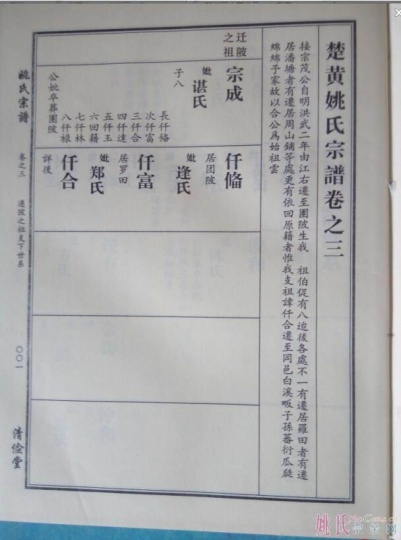 楚黄姚氏宗譜卷之三
接宗茂公自明洪武二年由江右遷至團陂生我 祖伯促有八迨後各處不一有遷居羅田者有遷
居潘塘者有遷居周山鋪等處更有依回原籍者惟我支祖諱仟合遷至岡邑白溪畈子孫蕃衍瓜瓞
綿綿于家故以合公為始祖雲
迁陂
之祖
宗成
妣
谌氏
子八
長仟脩
次仟富
三仟合
四仟達
五仟玉
六回籍
七仟林
八仟禄
公妣卒葬團陂
仟脩
居团陂
妣
逢氏
仟富
居罗田
妣
郑氏
仟合
詳後
姚氏宗譜
卷之三
遷陂之祖支下世系
〇〇一
清俭堂
姚氏